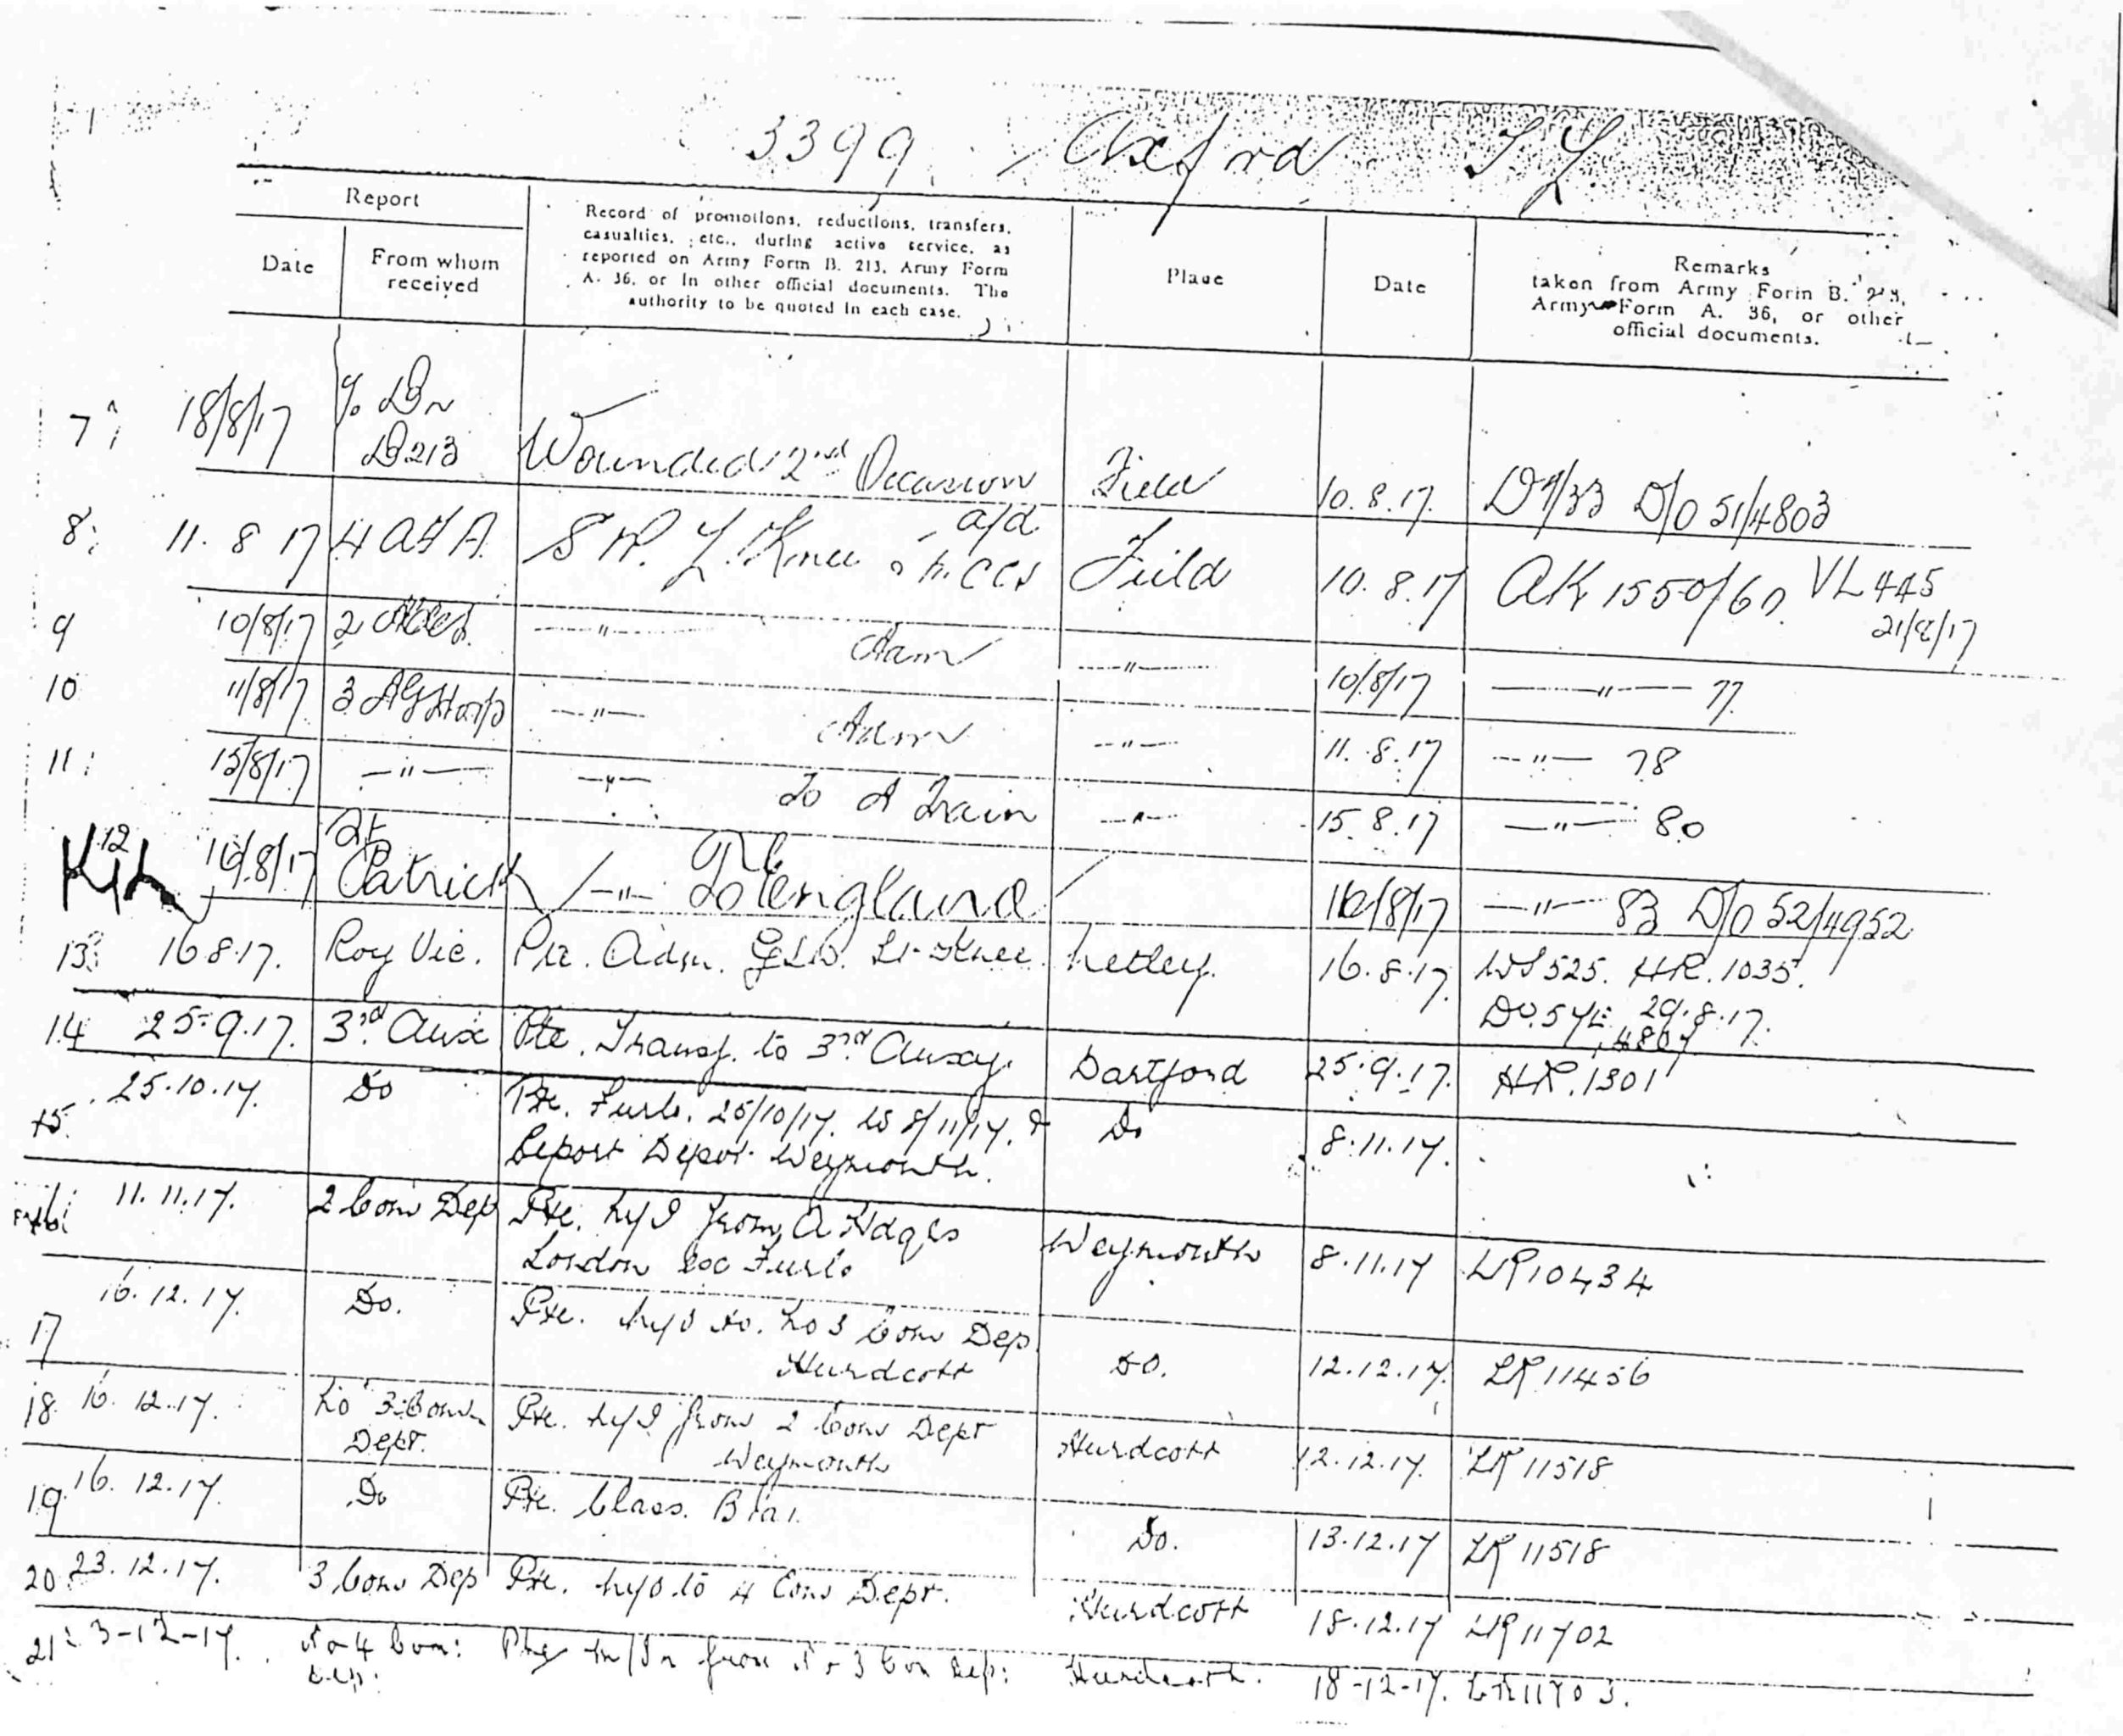 3399 Axford T L
Report
Date
From whom
received
Record of promotions, reductions, transfers,
casualties, etc., during active service, as
reported on Army Form B. 213, Army Form
A. 36, or in other official documents. The
authority to be quoted in each case.
Place
Date
Remarks
taken from Army Form B. 213,
Army Form A. 36, or other
official documents.
7 18/8/17 Bn B213 Wounded 2nd Occasion Field 10.8.17. D7/33 D/O 51/4803
8 11.8.17 4 A F A. S W. L. Knee a/d Tr. CCS Field 10.8.17 AK 1550/60. VL 445
21/8/17
9 10/8/17 2 —"— Adm —"— 10/8/17 —"— 77.
10 11/8/17 3 AG Hosp —"— Adm —"— 11.8.17 —"— 78
11 15/8/17 —"— —"— To A Train —"— 15.8.17 —"— 80
12 16/8/17 St Patrick —"— To England 16/8/17 —"— 83 D/O 52/4952
13 16.8.17. Roy Vic. Pte. Adm. G.S.W. Lt. Knee. Netley. 16.8.17. WS 525. HR. 1035.
29.8.17.
14 25.9.17. 3rd Aux Pte. Transf. to 3rd Auxy. Dartford 25.9.17. HR. 1301
15. 25.10.17. Do Pte. Furlo. 25/10/17. to 8/11/17. &
Report Depot Weymouth. Do 8.11.17.
11.11.17. 2 Com Dep Pte. M/I from A Hdqrs
London exc Furlo Weymouth 8.11.17 LR 10434
17 16.12.17. Do. Pte. M/O to. No 3 Com Dep
Hurdcott Do. 12.12.17. LR 11456
18. 16.12.17. No 3 Com Dept. Pte. M/I from 2 Com Dept
Weymouth Hurdcott 12.12.17. LR 11518
19. 16.12.17. Do Pte. Class. B1a1. Do. 13.12.17 LR 11518
20 23.12.17. 3 Com Dep Pte. M/O to 4 Com Dept. Hurdcott 18.12.17 LR 11702
21 No 4 Com: Dep: M/In from No 3 Com Dep: Hurdcott. 18-12-17. LR 11703.